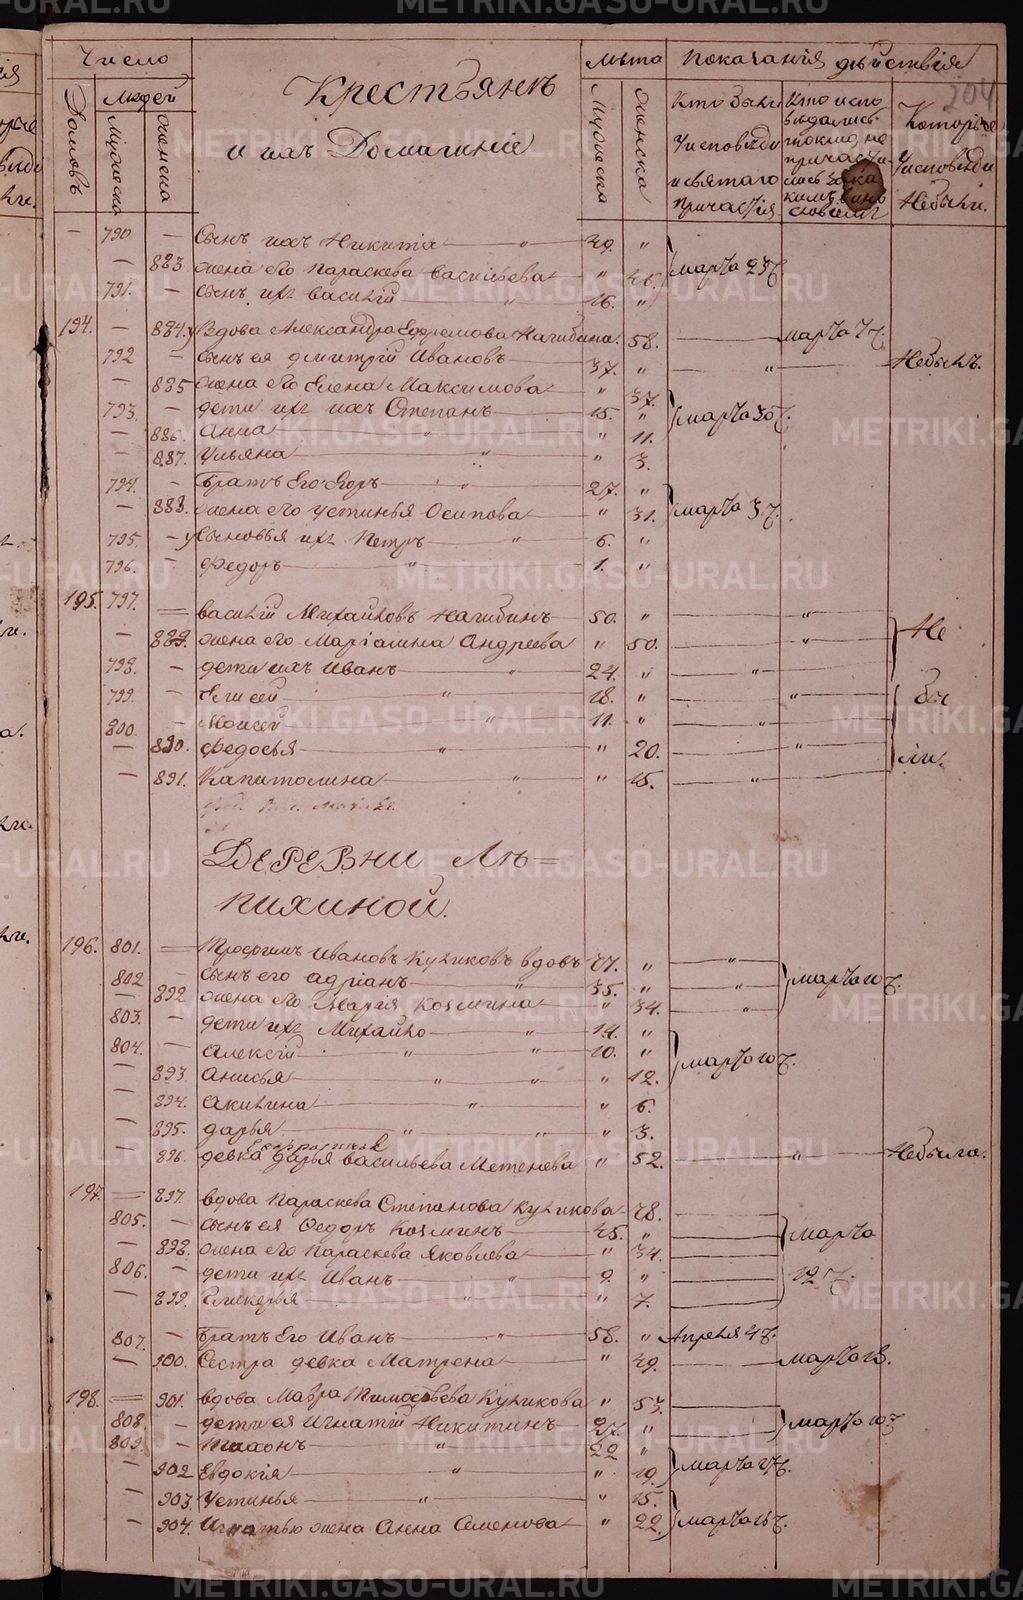 Число
Крестьянъ
и ихъ Домашніе
Лѣта
Показанія дѣйствія
204
Домовъ
Людей
Мужеска
Женска
Мужеска
Женска
Кто были
У исповѣди
и святаго
Причастія
Кто испо
вѣдались
токмо, но
не
причасти
лись за ка
кимъ вино
словіемъ
Которые
У исповѣди
Небыли.
— 790. — Сынъ ихъ Никита — " — 29. "
— 883. жена его Параскева Васильева — " 26. марта 23 ч.
791. — Сынъ ихъ Василій — " — 16. "
194. — 884. Вдова Александра Ефремова Нагибина. 58. — марта 7 ч.
792 — Сынъ ея Дмитрій Ивановъ — 37. " — " — Небылъ.
— 885 жена его Елена Максимова — " 37.
793. — дети ихъ Степанъ — 15. " марта 30 ч.
— 886. Анна — " — " 11.
— 887. Ульяна — " — " 3.
794. — Братъ Его Егоръ — " — 27. "
— 888. жена его Устинья Осипова — " 31. марта 3 ч.
795. — Сыновья ихъ Петръ — " — 6. "
796. — Федоръ — " — 1. "
195. 797. — Василій Михайловъ Нагибинъ — 50. " — "
— 889. жена его Маріамна Андреева " 50. — " — Не
798. — дети ихъ Иванъ — " — 24. " — "
799. — Елисей — " — 18. " — " — бы
800. — Моисей — " — 11. " — "
— 890. Федосья — " — " 20. — " — ли.
— 891. Капитолина — " — " 15. — "
Деревни Лѣ=
пихиной.
196. 801. — Трофимъ Ивановъ Куликовъ вдовъ " — "
802 — Сынъ его Адріанъ — " — 35. " — " марта 10 ч.
— 892 жена его Марія Козмина — " 34. — "
803. — дети ихъ Михайло — " — 14. "
804. — Алексій — " — " — 10. " марта 10 ч.
— 893. Анисья — " — " — " 12.
— 894. Акилина — " — " 6.
— 895. Дарья — " — " — " 3.
— 896. девка Дарья Васильева Метенева " 52. — " — Небыла.
197. — 897. вдова Параскева Степанова Куликова
805. — Сынъ ея Федоръ Козминъ " марта
— 898. жена его Параскева Яковлева — " 34.
806. — дети ихъ Иванъ — " — 9. " — 12 ч.
— 899. Гликерья — " — " 7.
807. — Братъ Его Иванъ — " — 58. " Апреля 4 ч.
— 900. Сестра девка Матрена — " 49. —
198. — 901. вдова Мавра Тимофеева Куликова " 57. —
808. — дети ея Игнатій Никитинъ — 27. " — марта 10 ч
809. — " — 22 "
— 902 Евдокія — " — " 19. марта
— 903. Устинья — " — " 15.
— 904. Игнатью жена Анна Семенова — " 22. марта
METRIKI.GASO-URAL.RU